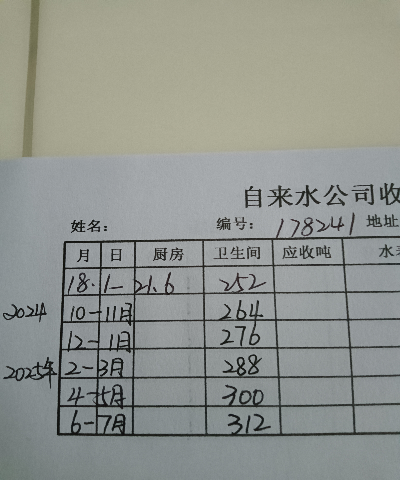 自来水公司收
姓名： 编号： 178241 地址
月 日 厨房 卫生间 应收吨 水
18.1- 21.6 252
2024 10-11月 264
12-1月 276
2025年 2-3月 288
4-5月 300
6-7月 312